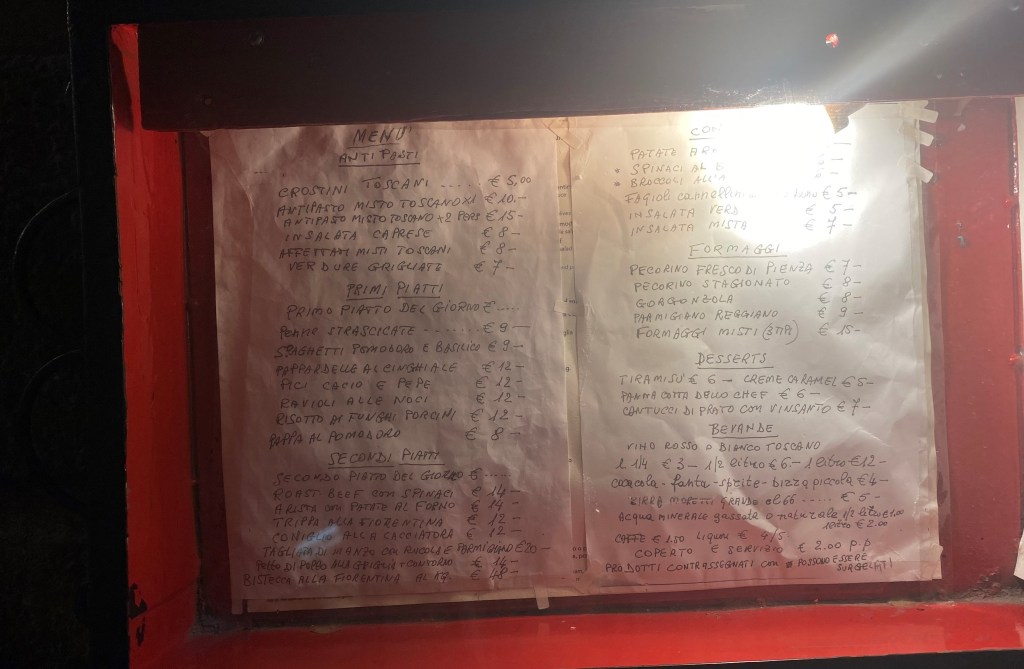 MENU'
ANTIPASTI
CROSTINI TOSCANI .... € 5,00
ANTIPASTO MISTO TOSCANO X1 € 10.-
ANTIPASTO MISTO TOSCANO X2 PERS € 15-
INSALATA CAPRESE € 8-
AFFETTATI MISTI TOSCANI € 8-
VERDURE GRIGLIATE € 7-
PRIMI PIATTI
PRIMO PIATTO DEL GIORNO € ....
PENNE STRASCICATE ........ € 9-
SPAGHETTI POMODORO E BASILICO € 9-
PAPPARDELLE AL CINGHIALE € 12-
PICI CACIO E PEPE € 12-
RAVIOLI ALLE NOCI € 12-
RISOTTO AI FUNGHI PORCINI € 12-
PAPPA AL POMODORO € 8-
SECONDI PIATTI
SECONDO PIATTO DEL GIORNO € ....
ROAST BEEF CON SPINACI € 14-
ARISTA CON PATATE AL FORNO € 14-
TRIPPA ALLA FIORENTINA € 12-
CONIGLIO ALLA CACCIATORA € 12-
TAGLIATA DI MANZO CON RUCOLA E PARMIGIANO € 20-
PETTO DI POLLO ALLA GRIGLIA + CONTORNO € 14-
BISTECCA ALLA FIORENTINA AL €
CON
PATATE
SPINACI AL
BROCCOLI ALL'
Fagioli cannellini € 5-
INSALATA VERD € 5-
INSALATA MISTA € 7-
FORMAGGI
PECORINO FRESCO DI PIENZA € 7-
PECORINO STAGIONATO € 8-
GORGONZOLA € 8-
PARMIGIANO REGGIANO € 9-
FORMAGGI MISTI € 15-
DESSERTS
TIRAMISU' € 6- CREME CARAMEL € 5-
PANNA COTTA DELLO CHEF € 6-
CANTUCCI DI PRATO CON VINSANTO € 7-
BEVANDE
VINO ROSSO O BIANCO TOSCANO
1/4 € 3- 1/2 litro € 6- 1 litro € 12-
cocacola - fanta - sprite - birra piccola € 4-
GRANDE cl 66 ..... € 5-
ACQUA MINERALE gassata o naturale 1/2 litro € 1.00
1 litro € 2.00
CAFFE € 1.50 Liquori € 4/5
COPERTO E SERVIZIO € 2.00 p.p
PRODOTTI CONTRASSEGNATI con POSSONO ESSERE
SURGELATI